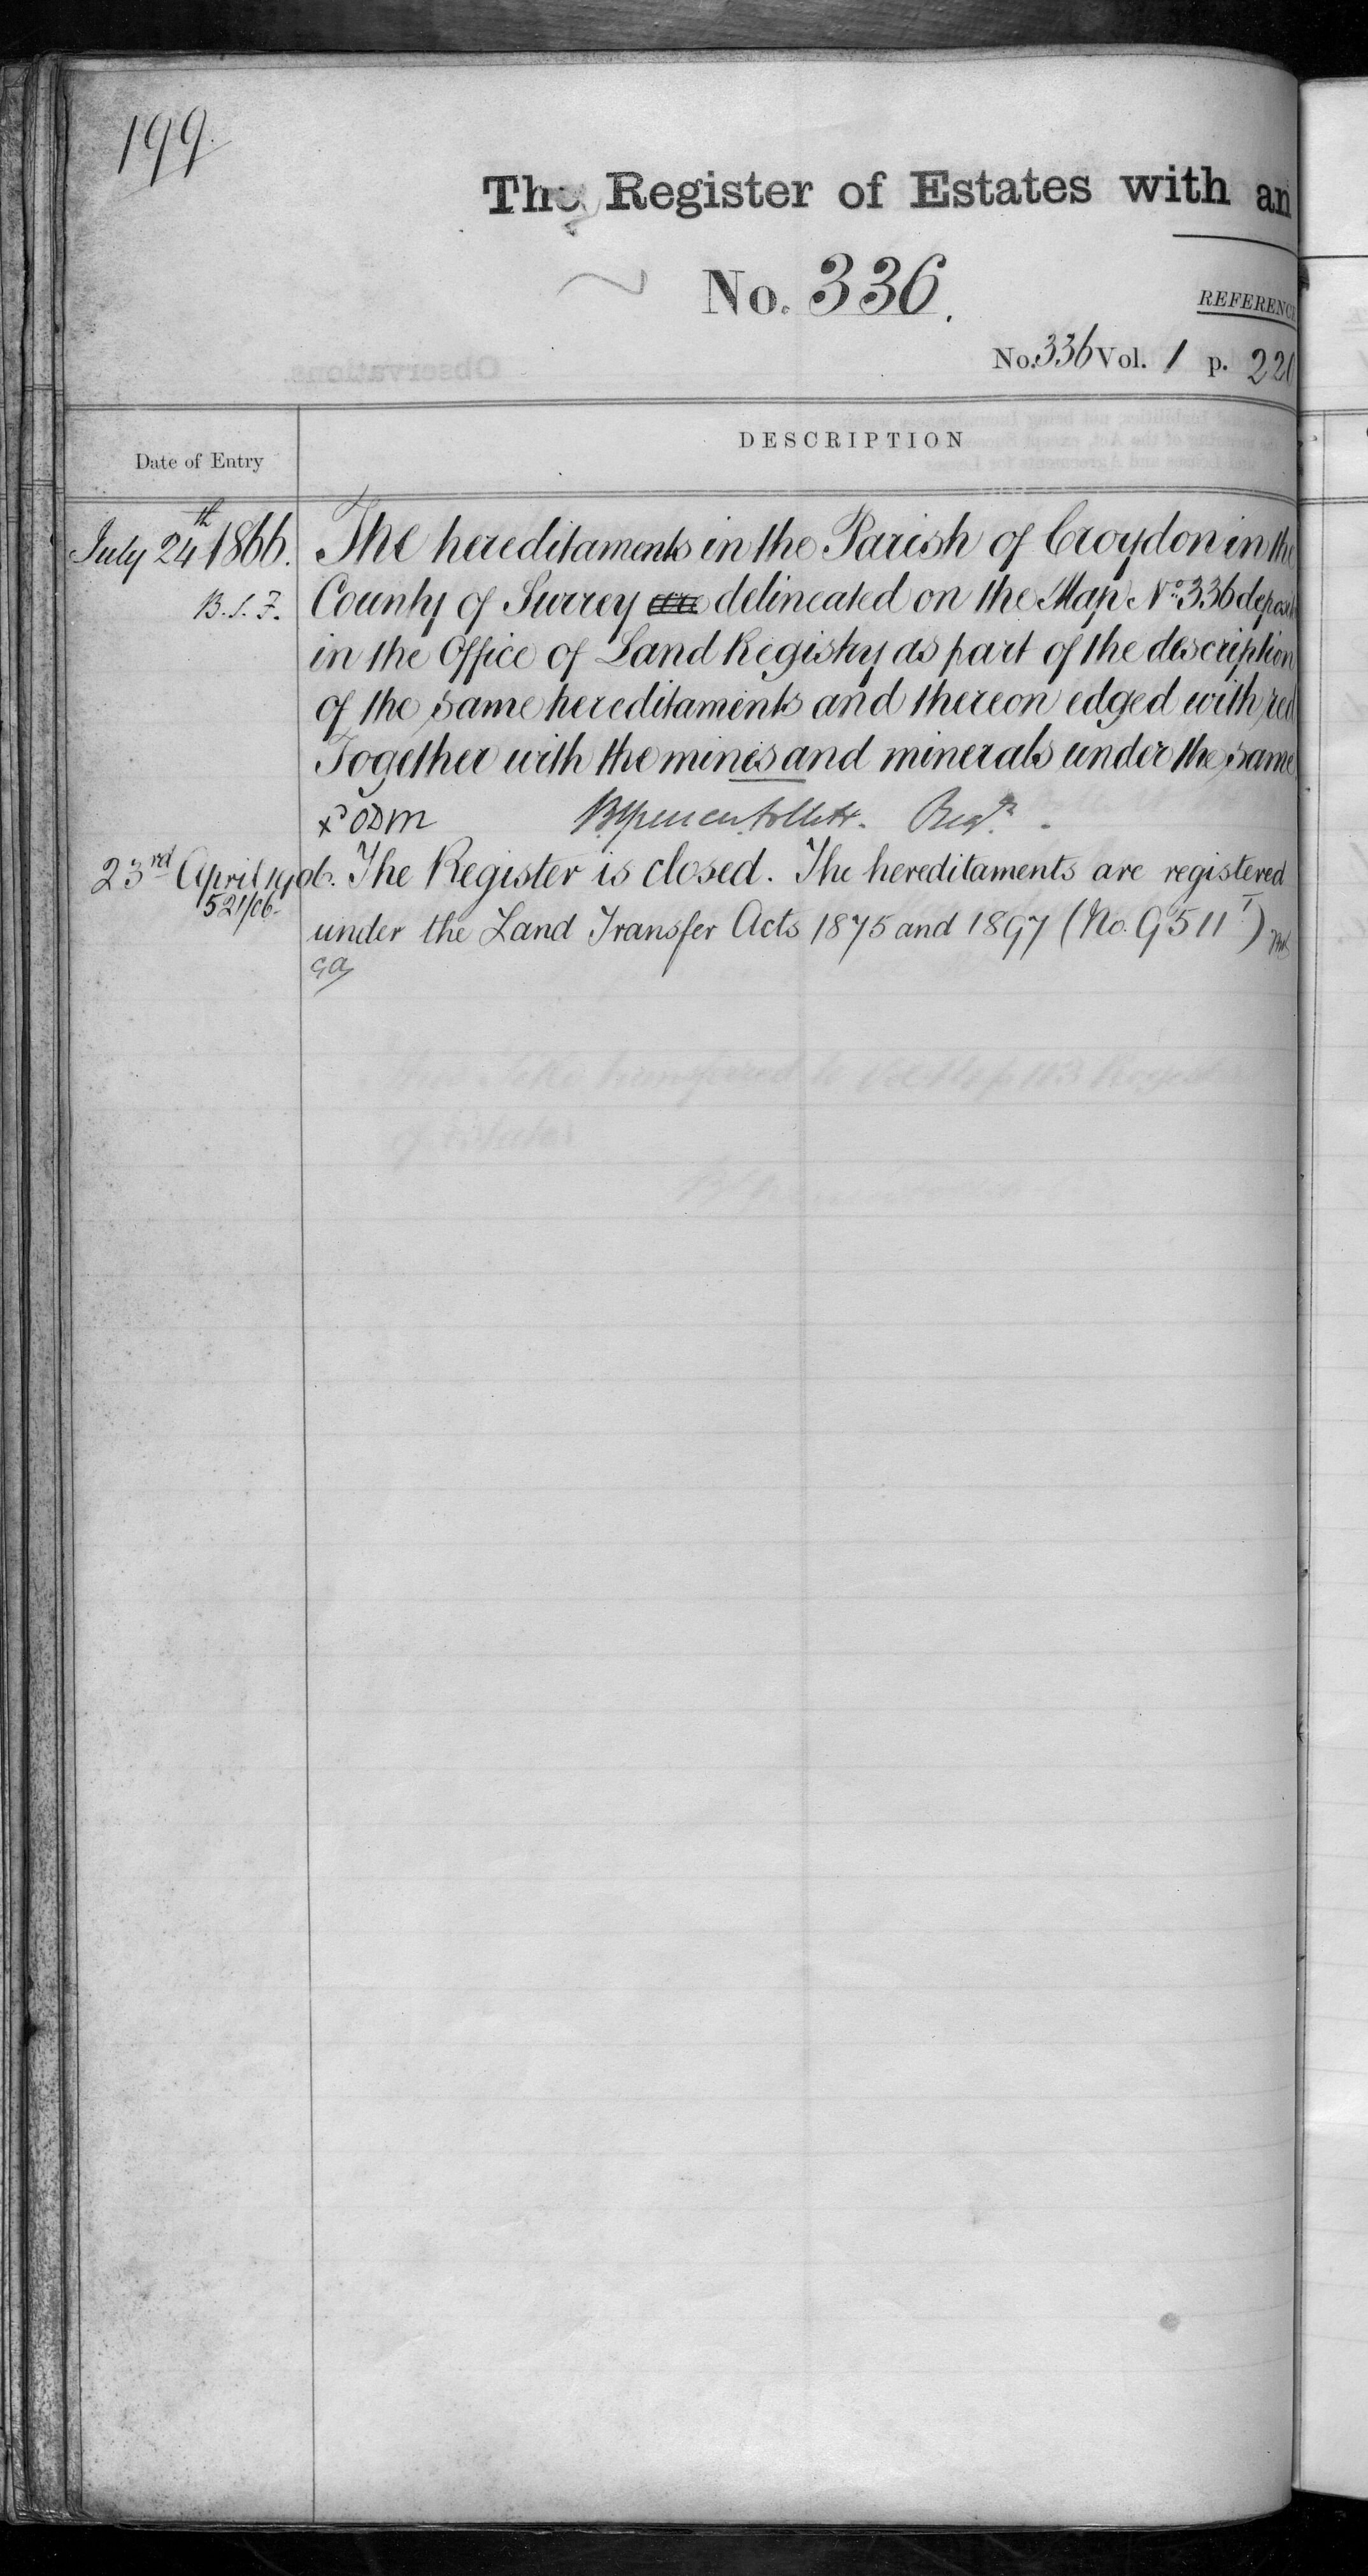 199.
The Register of Estates with an
No. 336.
REFERENCE
No. 336 Vol. 1 p. 220
Date of Entry
DESCRIPTION
July 24th 1866. The hereditaments in the Parish of Croydon in the
B.S.F. County of Surrey delineated on the Map No. 336 deposi
in the Office of Land Registry as part of the description
of the same hereditaments and thereon edged with red
Together with the mines and minerals under the same
x ODM BSpencer Follett. Regr.
23rd April 1906. The Register is closed. The hereditaments are registered
521/06. under the Land Transfer Acts 1875 and 1897 (No. 9511 T)
GA